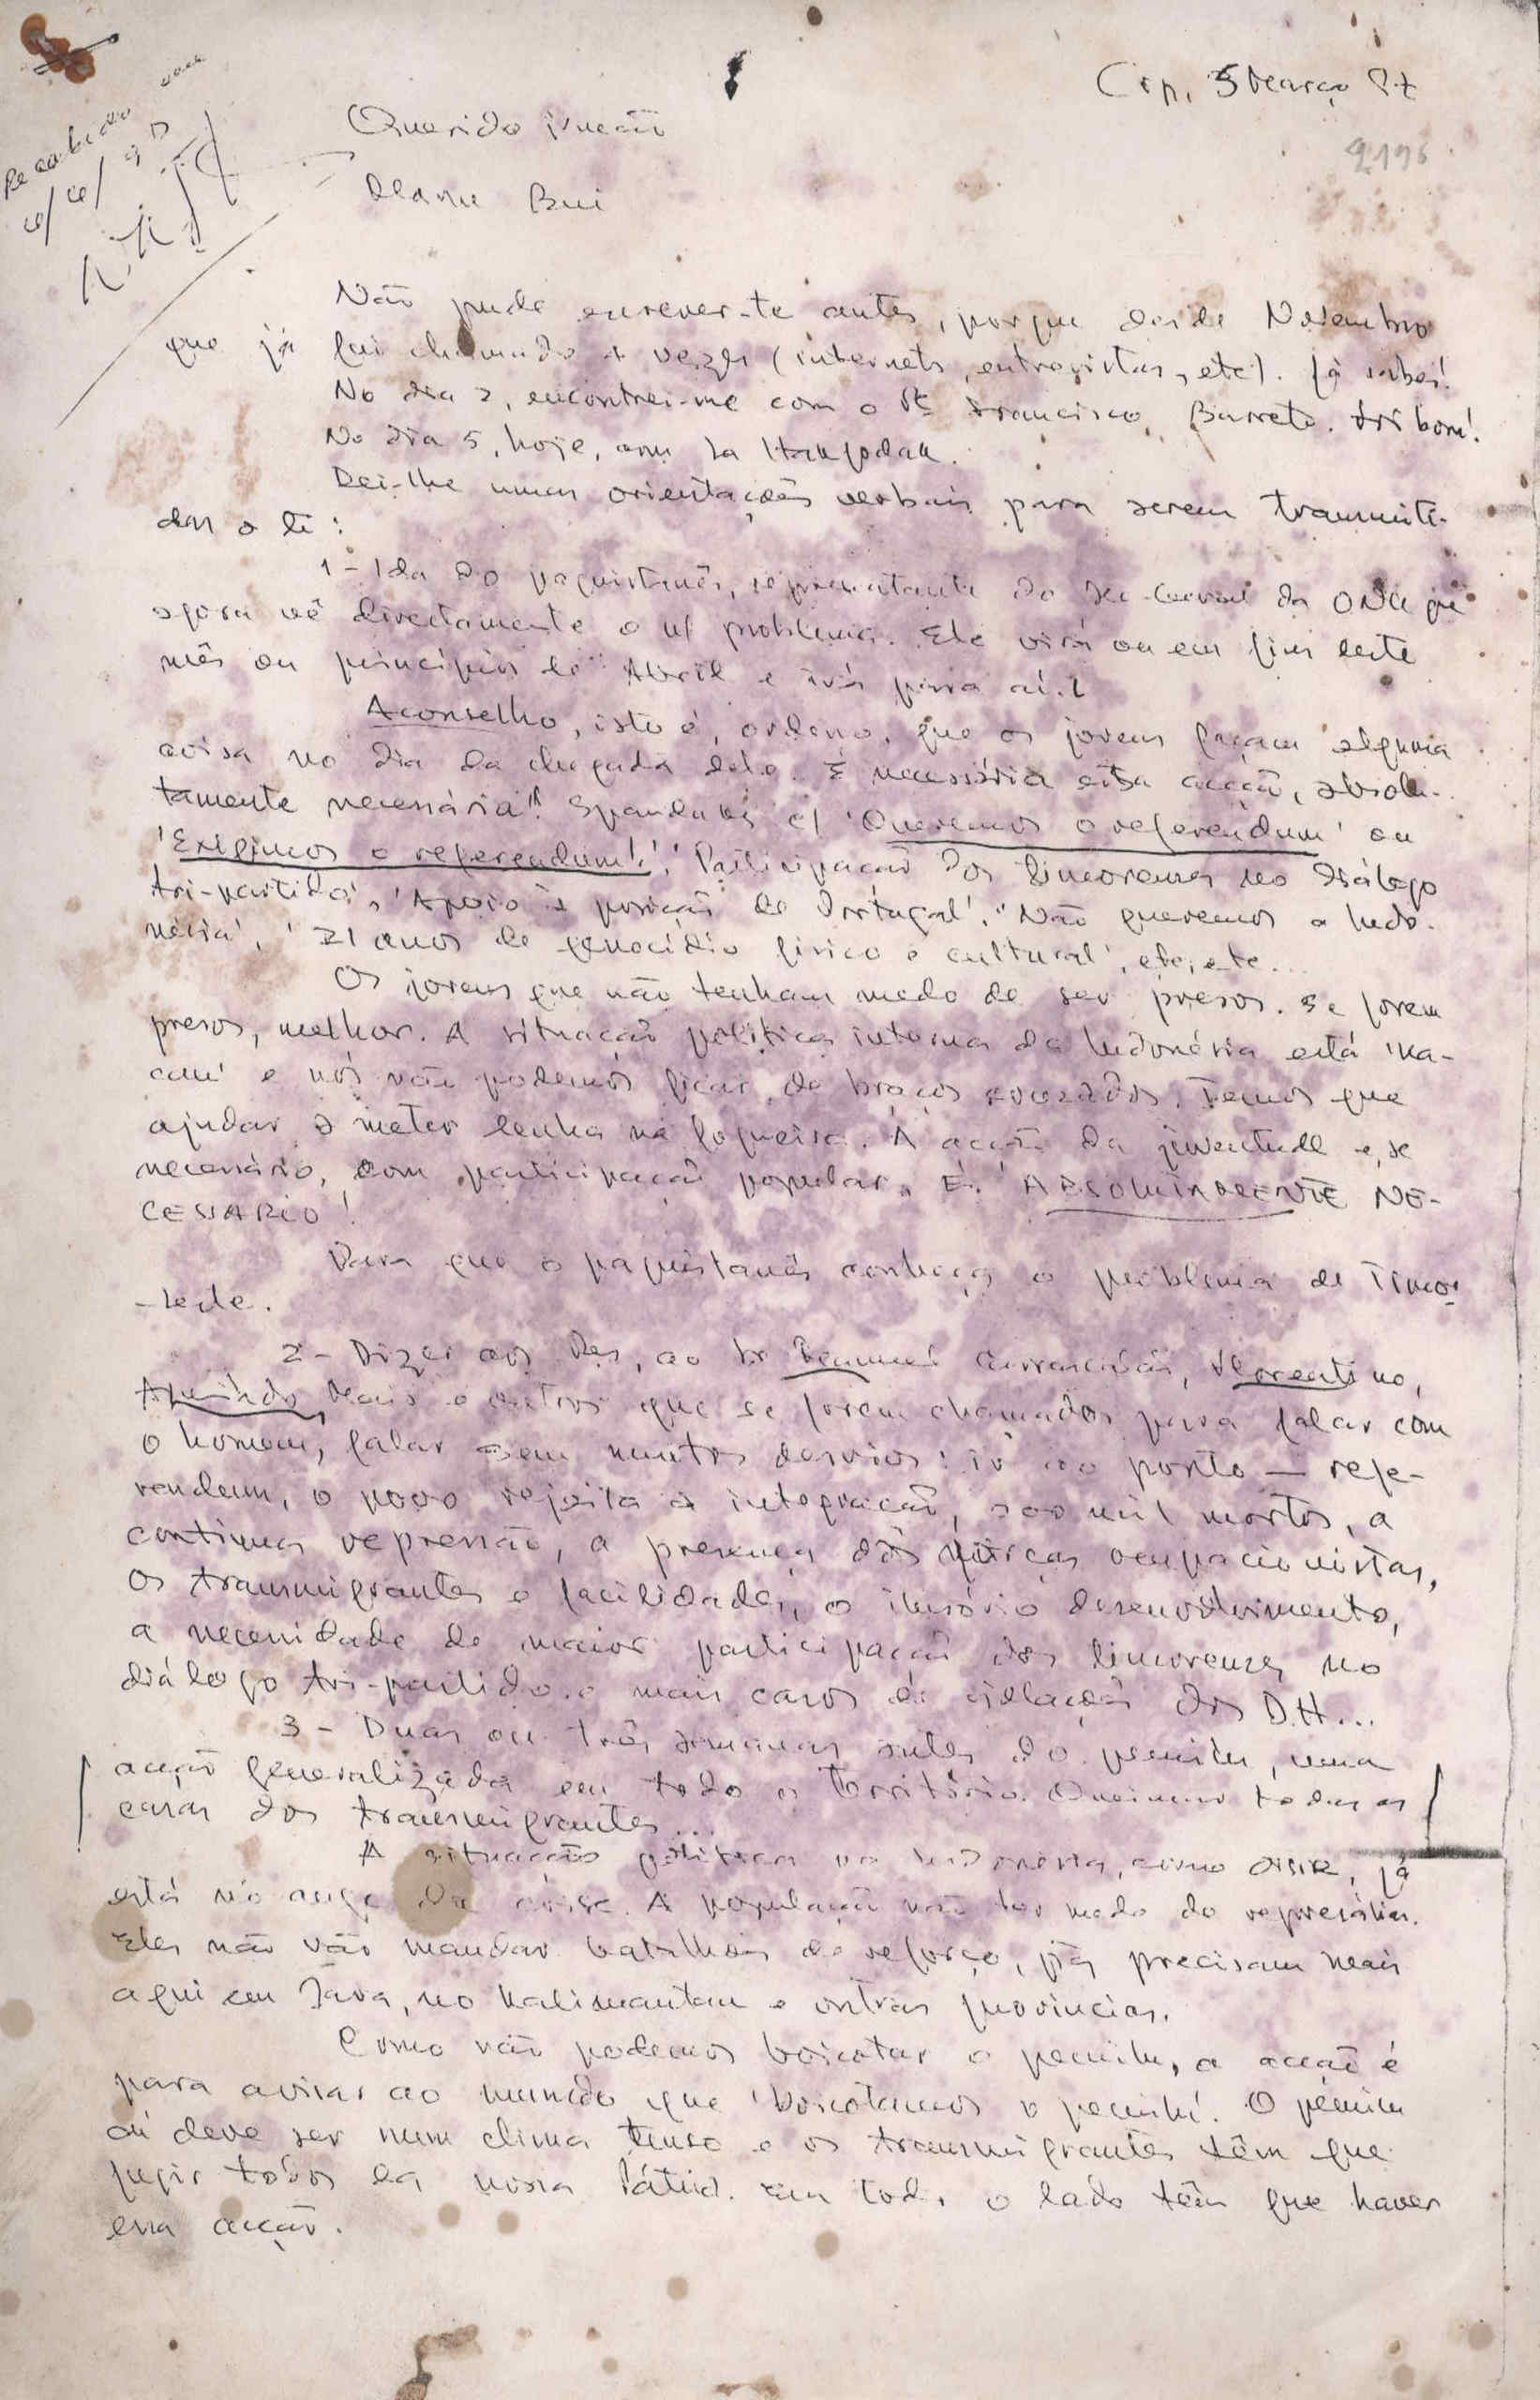 Cip, 5 Março 97
2196
Recebido
Querido irmão
Manu Bui
Não pude escrever-te antes, porque desde Novembro
que já fui chamado 4 vezes (internets, entrevistas, etc). Já sabes!
No dia 2, encontrei-me com o Francisco Barreto. bom!
No dia 5, hoje, com
Dei-lhe umas orientações verbais para serem transmiti-
das a ti:
1 - Ida do paquistanês, representante do Sec-Geral da ONU que
agora vê directamente o n/ problema. Ele virá ou em fins deste
mês ou princípios de Abril e irá para aí.
Aconselho, isto é, ordeno, que os jovens façam alguma
coisa no dia da chegada dele. É necessária essa acção, absolu-
tamente necessária! Spanduks c/ 'Queremos o referendum' ou
'Exigimos o referendum!', 'Participação dos timorenses no diálogo
tri-partido', 'Apoio à posição de Portugal', 'Não queremos a Indo-
nésia', '21 anos de genocídio físico e cultural', etc, etc...
Os jovens que não tenham medo de ser presos. Se forem
presos, melhor. A situação política interna da Indonésia está 'ka-
cau' e nós não podemos ficar de braços cruzados. Temos que
ajudar a meter lenha na fogueira. A acção da juventude e, se
necessário, com participação popular, É ABSOLUTAMENTE NE-
CESSÁRIO!
Para que o paquistanês conheça o problema de Timor
-Leste.
2 - Dizer aos Pes, ao Sr Carrascalão, Florentino,
e outros que se forem chamados para falar com
o homem, falar sem muitos desvios: ir ao ponto — refe-
rendum, o povo rejeita a integração, 200 mil mortos, a
contínua repressão, a presença das forças ocupacionistas,
os transmigrantes e facilidades, o ilusório desenvolvimento,
a necessidade de maior participação dos timorenses no
diálogo tri-partido e mais casos de violação dos D.H...
3 - Duas ou três semanas antes do pemilu, uma
acção generalizada em todo o Território. Queimar todas as
casas dos transmigrantes...
A situação política na Indonésia, como disse, já
está no auge da crise. A população não ter medo de represálias.
Eles não vão mandar batalhões de reforço, já precisam mais
aqui em Java, no Kalimantan e outras províncias.
Como não podemos boicotar o pemilu, a acção é
para avisar ao mundo que 'boicotamos o pemilu'. O pemilu
aí deve ser num clima tenso e os transmigrantes têm que
fugir todos da nossa Pátria. Em todo o lado têm que haver
essa acção.